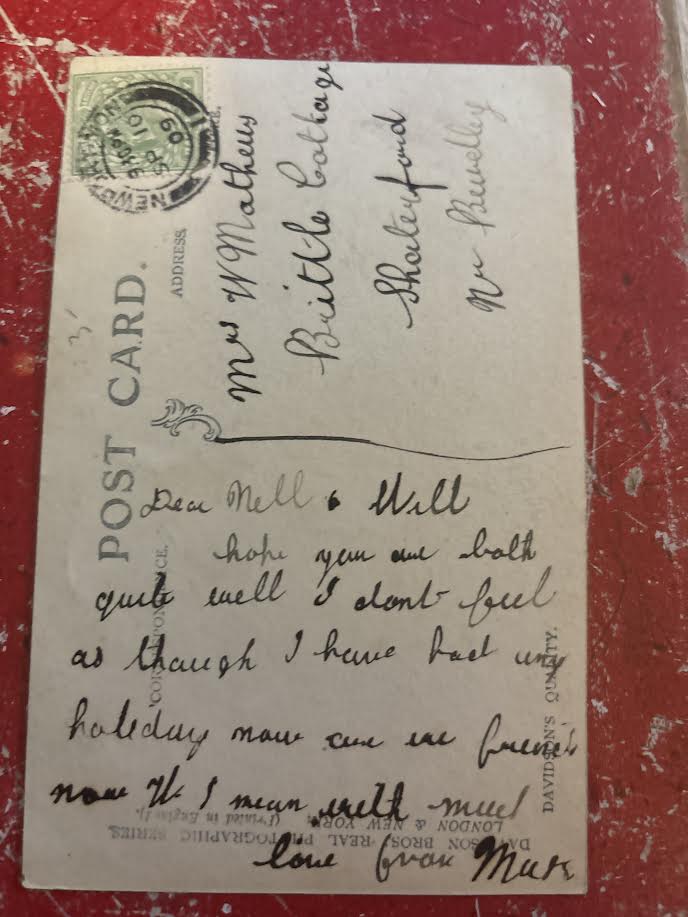 POST CARD.
ADDRESS
Mrs W Mathews
Brittle Cottage
Shaterford
Nr Bewdley
'CORRESPONDENCE.
Dear Nell & Will
hope you are both
quite well I dont feel
as though I have had any
holiday now are we friends
now W I mean with much
love from
DAVIDSON'S QUALITY.
DAVIDSON BROS' REAL PHOTOGRAPHIC SERIES.
LONDON & NEW YORK (Printed in England).
SP 10
09